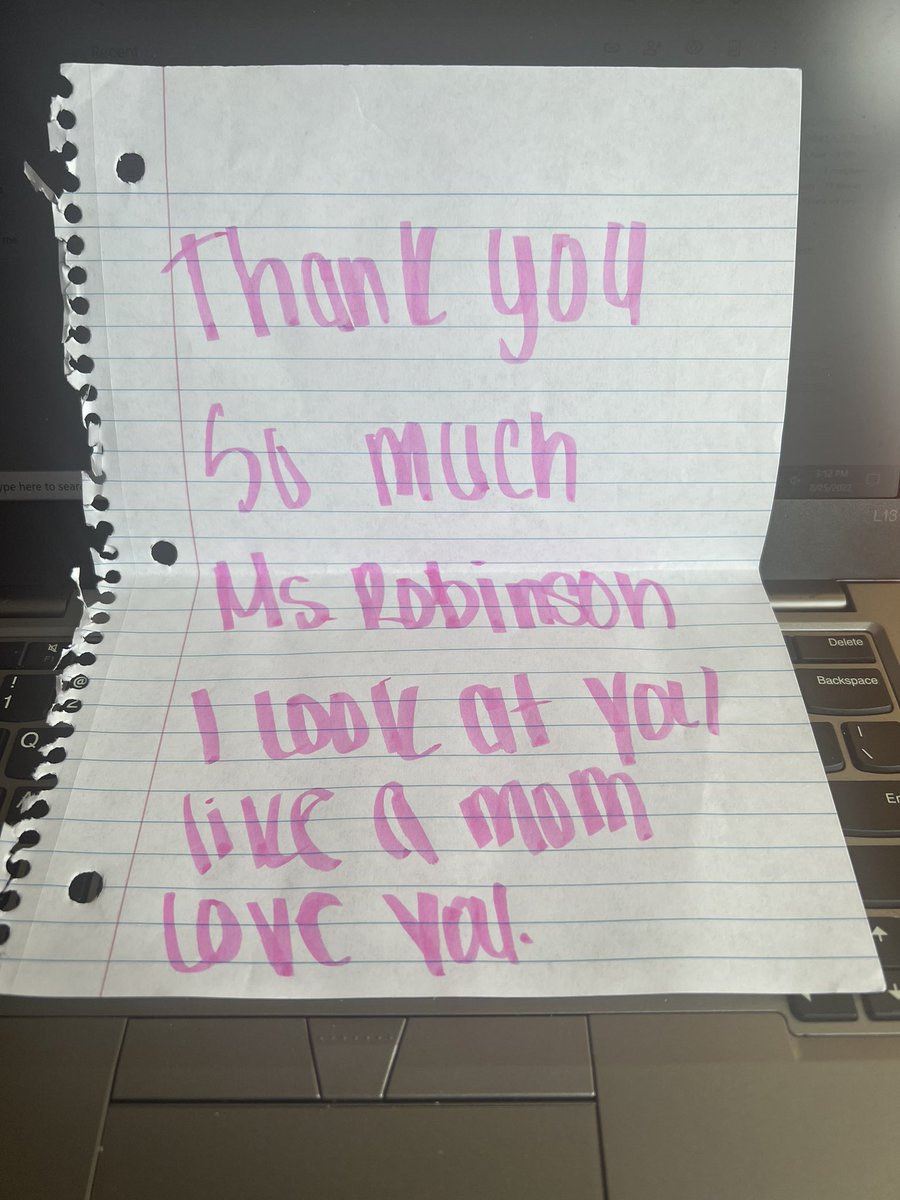 Recent
Thank you
So much
Ms Robinson
I look at you
like a mom
love you.
ype here to sear
3:12 PM
8/25/2022
L13
Delete
Backspace
!
1
@
2
F1
Q
|
\
En